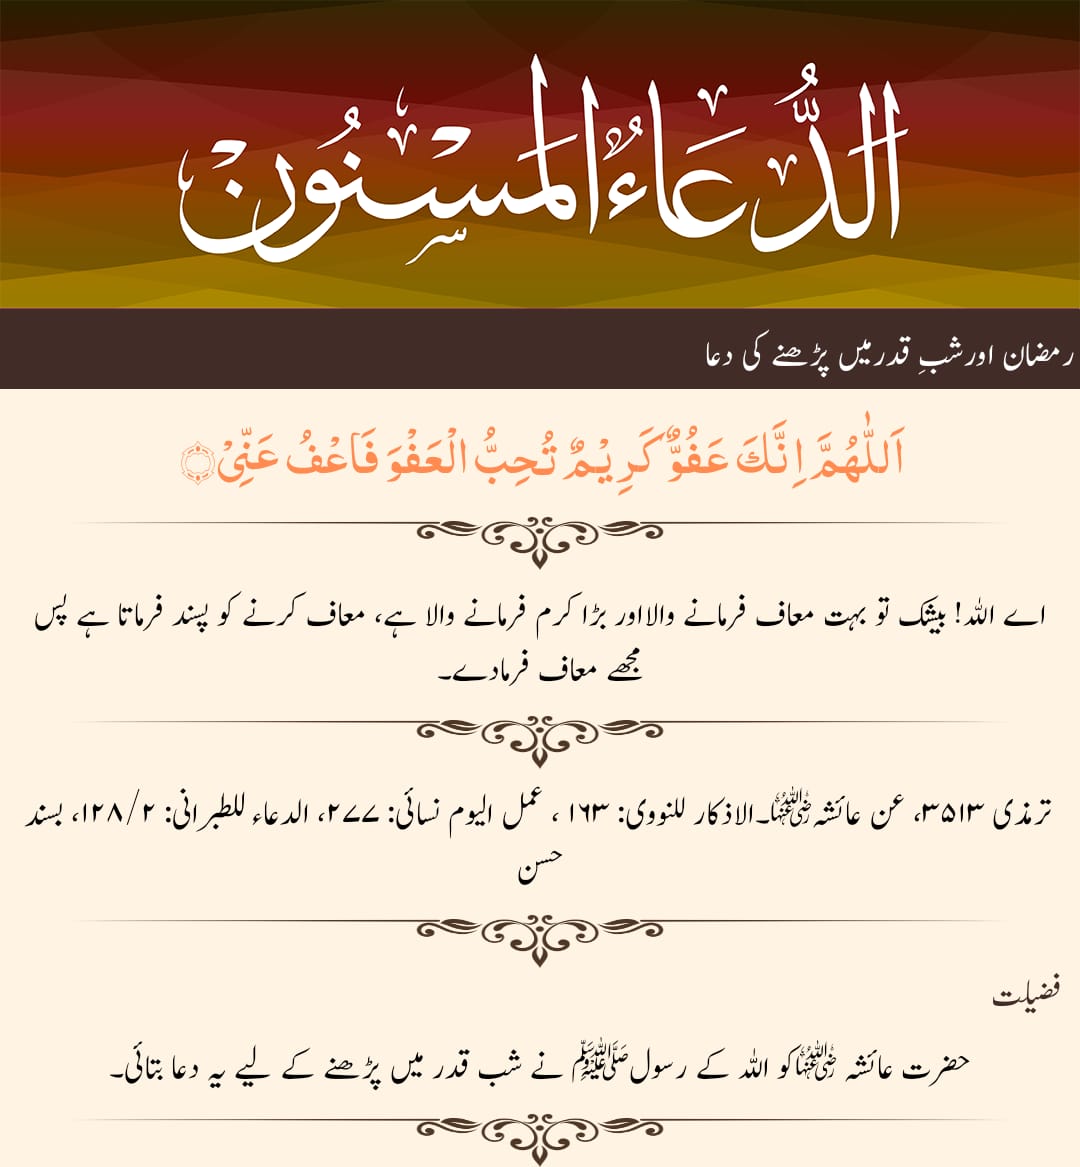 الدُّعَاءُ الْمَسْنُون
رمضان اور شبِ قدر میں پڑھنے کی دعا
اَللّٰهُمَّ اِنَّكَ عَفُوٌّ كَرِيْمٌ تُحِبُّ الْعَفْوَ فَاعْفُ عَنِّيْ۝
اے اللہ! بیشک تو بہت معاف فرمانے والا اور بڑا کرم فرمانے والا ہے، معاف کرنے کو پسند فرماتا ہے پس
مجھے معاف فرمادے۔
ترمذی ۳۵۱۳، عن عائشہ رضی اللہ عنہا۔ الاذکار للنووی: ۱۶۳ ، عمل الیوم نسائی: ۲۷۷، الدعاء للطبرانی: ۱۲۸/۲، بسند
حسن
فضیلت
حضرت عائشہ رضی اللہ عنہا کو اللہ کے رسول ﷺ نے شب قدر میں پڑھنے کے لیے یہ دعا بتائی۔